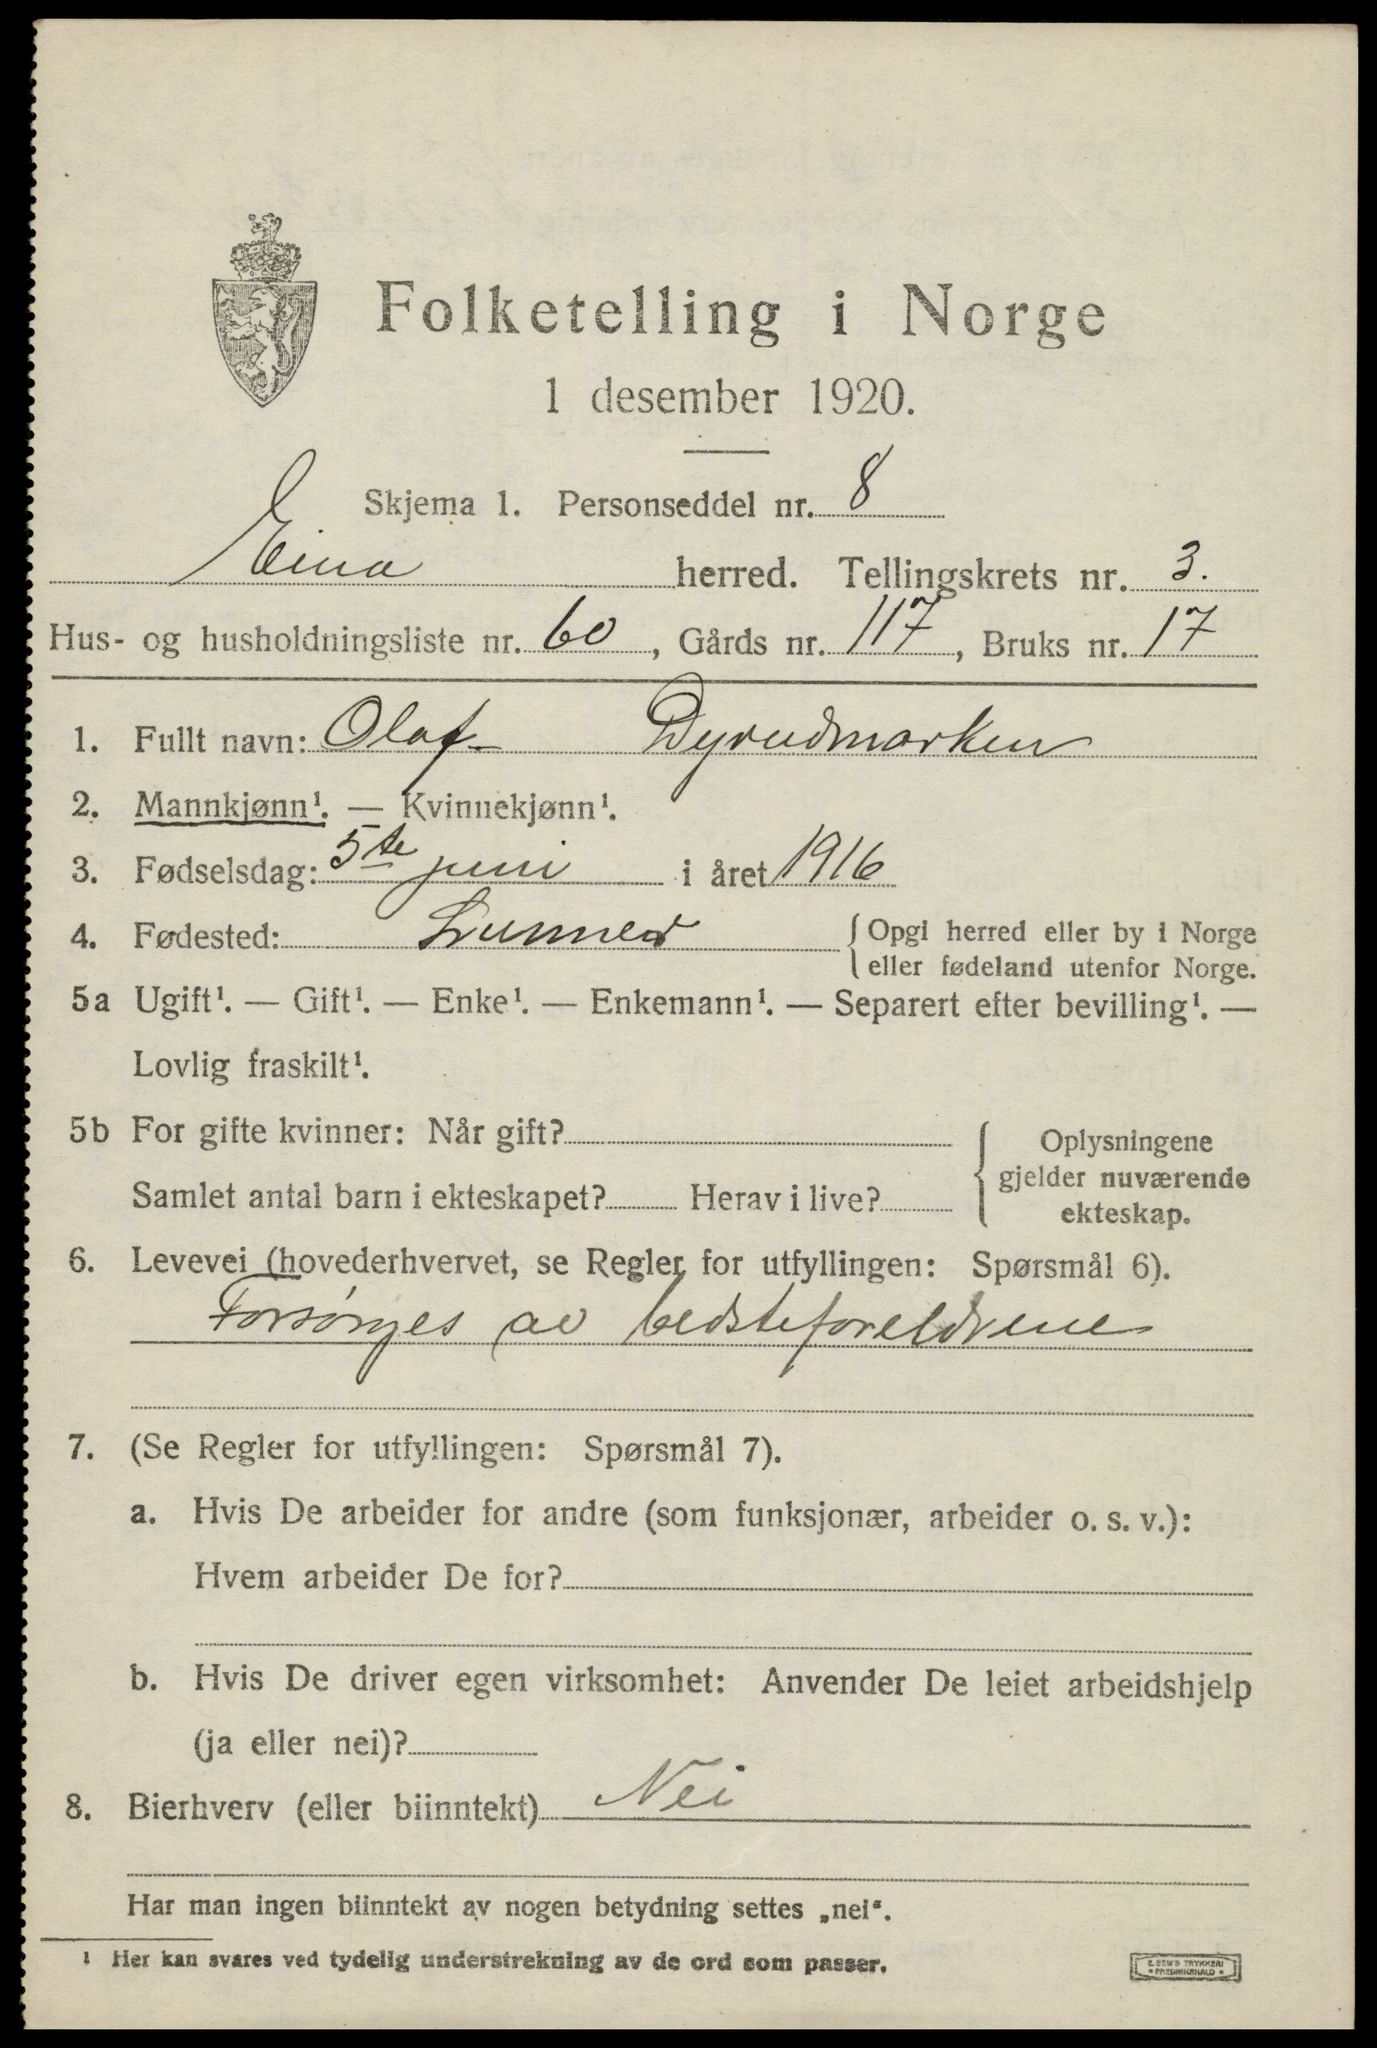 Folketelling i Norge
1 desember 1920.
Skjema 1. Personseddel nr. 8
Eina herred. Tellingskrets nr. 3.
Hus- og husholdningsliste nr. 60, Gårds nr. 117, Bruks nr. 17
1. Fullt navn: Olaf Dyrudmarken
2. Mannkjønn¹. — Kvinnekjønn¹.
3. Fødselsdag: 5te juni i året 1916
4. Fødested: Lunner { Opgi herred eller by i Norge
eller fødeland utenfor Norge.
5a Ugift¹. — Gift¹. — Enke¹. — Enkemann¹. — Separert efter bevilling¹. —
Lovlig fraskilt¹.
5b For gifte kvinner: Når gift? { Oplysningene
gjelder nuværende
Samlet antal barn i ekteskapet? Herav i live? ekteskap.
6. Levevei (hovederhvervet, se Regler for utfyllingen: Spørsmål 6).
Forsørges av bedsteforeldrene
7. (Se Regler for utfyllingen: Spørsmål 7).
a. Hvis De arbeider for andre (som funksjonær, arbeider o. s. v.):
Hvem arbeider De for?
b. Hvis De driver egen virksomhet: Anvender De leiet arbeidshjelp
(ja eller nei)?
8. Bierhverv (eller biinntekt) Nei
Har man ingen biinntekt av nogen betydning settes „nei“.
¹ Her kan svares ved tydelig understrekning av de ord som passer.
E. SEM'S TRYKKERI
• FREDRIKSHALD •